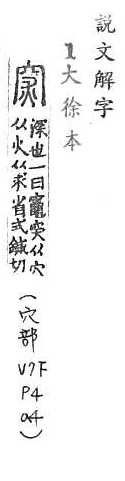 說文解字
1大徐本
深也一曰竈突从穴
从火从求省式鍼切
(穴部 V7下 P4 a4)